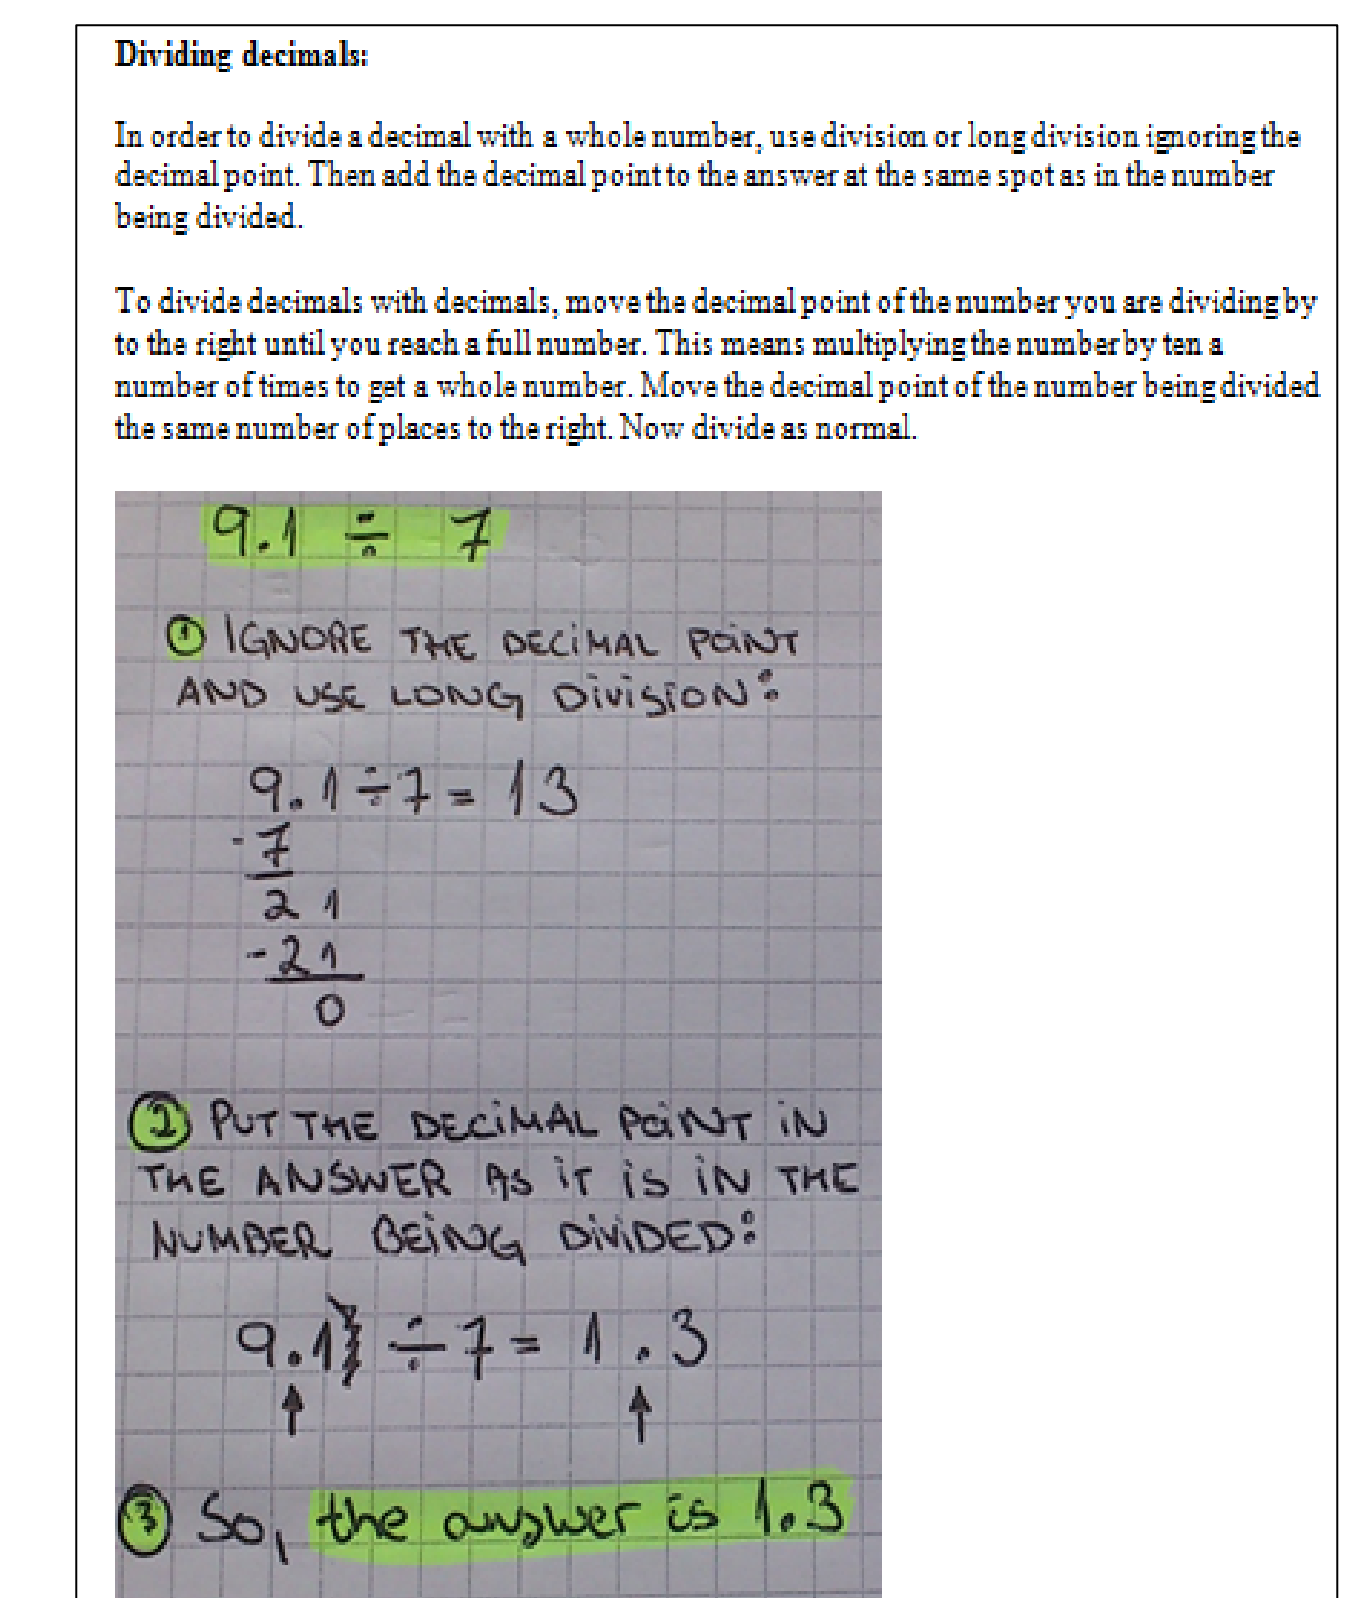 Dividing decimals:
In order to divide a decimal with a whole number, use division or long division ignoring the
decimal point. Then add the decimal point to the answer at the same spot as in the number
being divided.
To divide decimals with decimals, move the decimal point of the number you are dividing by
to the right until you reach a full number. This means multiplying the number by ten a
number of times to get a whole number. Move the decimal point of the number being divided
the same number of places to the right. Now divide as normal.
9.1 ÷ 7
① IGNORE THE DECIMAL POINT
AND USE LONG DIVISION:
9.1÷7 = 13
-7
21
-21
0
② PUT THE DECIMAL POINT IN
THE ANSWER AS IT IS IN THE
NUMBER BEING DIVIDED:
9.1 ÷ 7 = 1.3
↑ ↑
③ So, the answer is 1.3